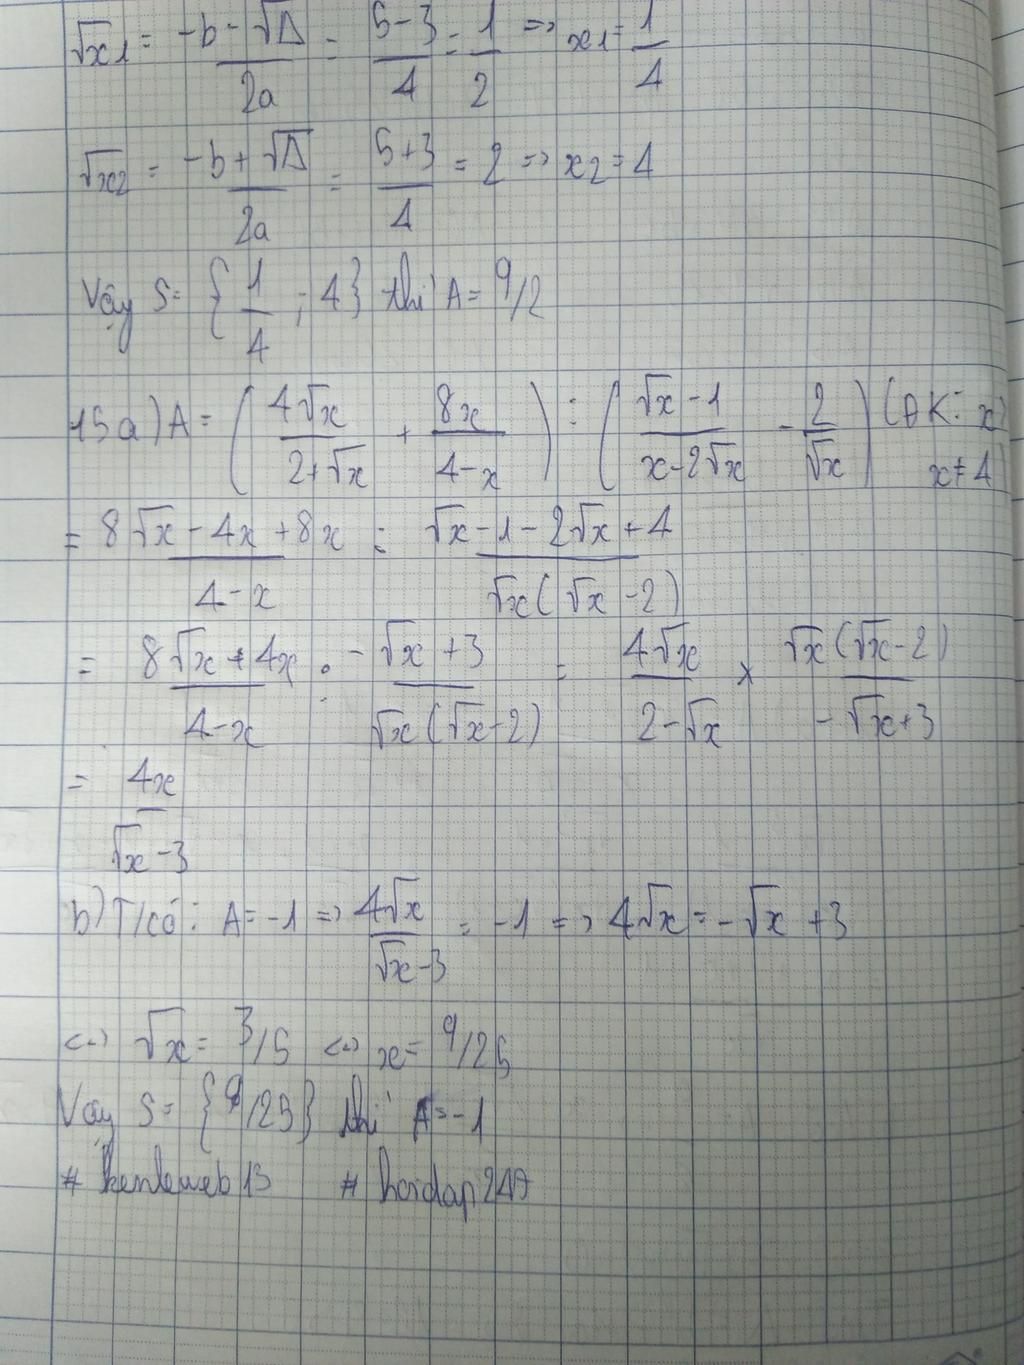 √x1 = (-b - √Δ)/2a = (5-3)/4 = 1/2 => x1 = 1/4
√x2 = (-b + √Δ)/2a = (5+3)/4 = 2 => x2 = 4
Vậy S = {1/4 ; 4} thì A = 9/2
15 a) A = (4√x/(2+√x) + 8x/(4-x)) : ((√x-1)/(x-2√x) - 2/√x) (ĐK: x> x≠4)
= (8√x - 4x + 8x)/(4-x) : (√x - 1 - 2√x + 4)/(√x(√x-2))
= (8√x + 4x)/(4-x) : (-√x + 3)/(√x(√x-2)) = 4√x/(2-√x) × √x(√x-2)/(-√x+3)
= 4x/(√x-3)
b) T/có: A = -1 => 4√x/(√x-3) = -1 => 4√x = -√x + 3
<-> √x = 3/5 <-> x = 9/25
Vậy S = {9/25} thì A = -1
# kenleweb13 # hoidap247